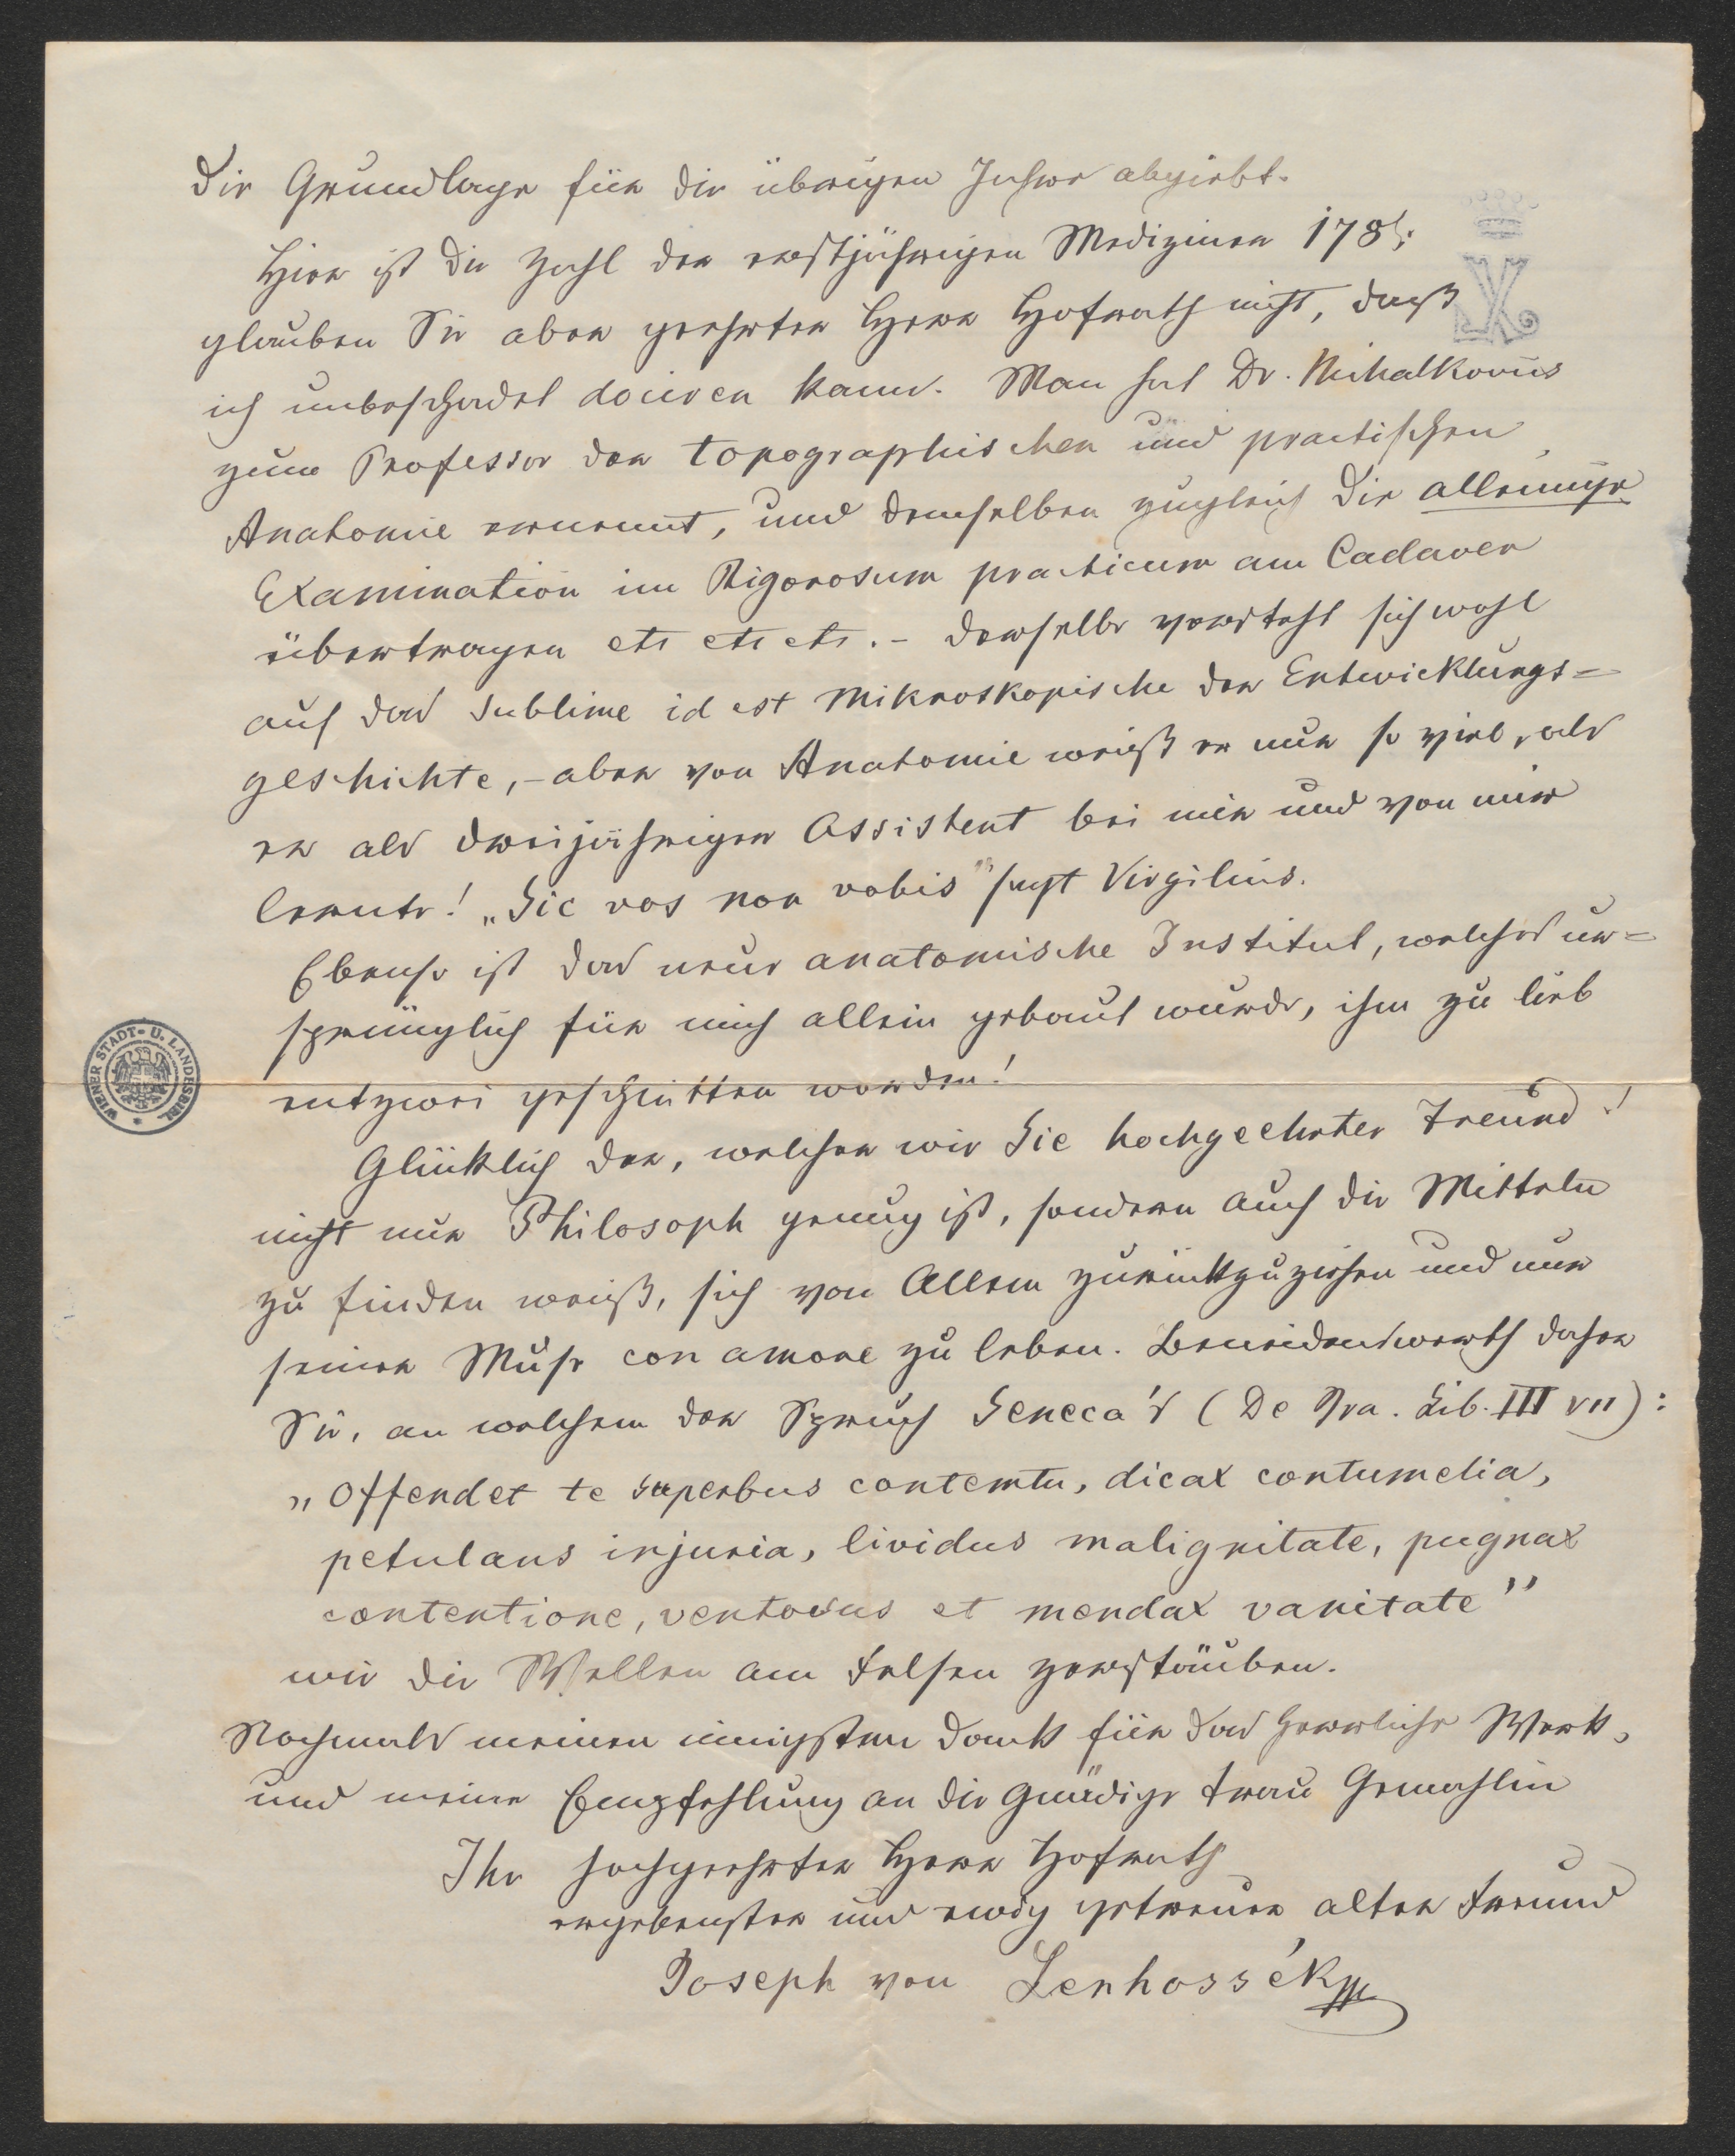 die Grundlage für die übrigen Jahre abgiebt.
Hier ist die Zahl der erstjährigen Mediziner 178;
glauben Sie aber geehrter Herr Hofrath nicht, daß
ich unbeschadet dociren kann. Man hat Dr. Mihalkovics
zum Professor der topographischen und practischen
Anatomie ernennt, und demselben zugleich die alleinige
Examination im Rigorosum practicum am Cadaver
übertragen etc etc etc. – Derselbe versteht sich wohl
auf das Sublime id est Mikroskopische der Entwicklungs=
geschichte, – aber von Anatomie weiß er nur so viel, als
er als dreijähriger Assistent bei mir und von mir
lernte! „Sic vos non vobis" sagt Virgilius.
Ebenso ist das neue anatomische Institut, welches ur=
sprünglich für mich allein gebaut wurde, ihm zu lieb
entzwei geschnitten worden!
Glücklich der, welcher wie Sie hochgeehrter Freund!
nicht nur Philosoph genug ist, sondern auch die Mitteln
zu finden weiß, sich von Allem zurückzuziehen und nur
seiner Muse con amore zu leben. Beneidenswerth daher
Sie, an welchem der Spruch Seneca's (De Ira. Lib. III VII):
„Offendet te superbus contemtu, dicax contumelia,
petulans injuria, lividus malignitate, pugnax
contentione, ventosus et mendax vanitate"
wie die Wellen am Felsen zerstäuben.
Nochmals meinen innigsten Dank für das herrliche Werk,
und meine Empfehlung an die gnädige Frau Gemahlin
Ihr hochgeehrter Herr Hofrath
ergebenster und ewig getreuer alter Freund
Joseph von Lenhossék
WIENER STADT- U. LANDESBIBL.